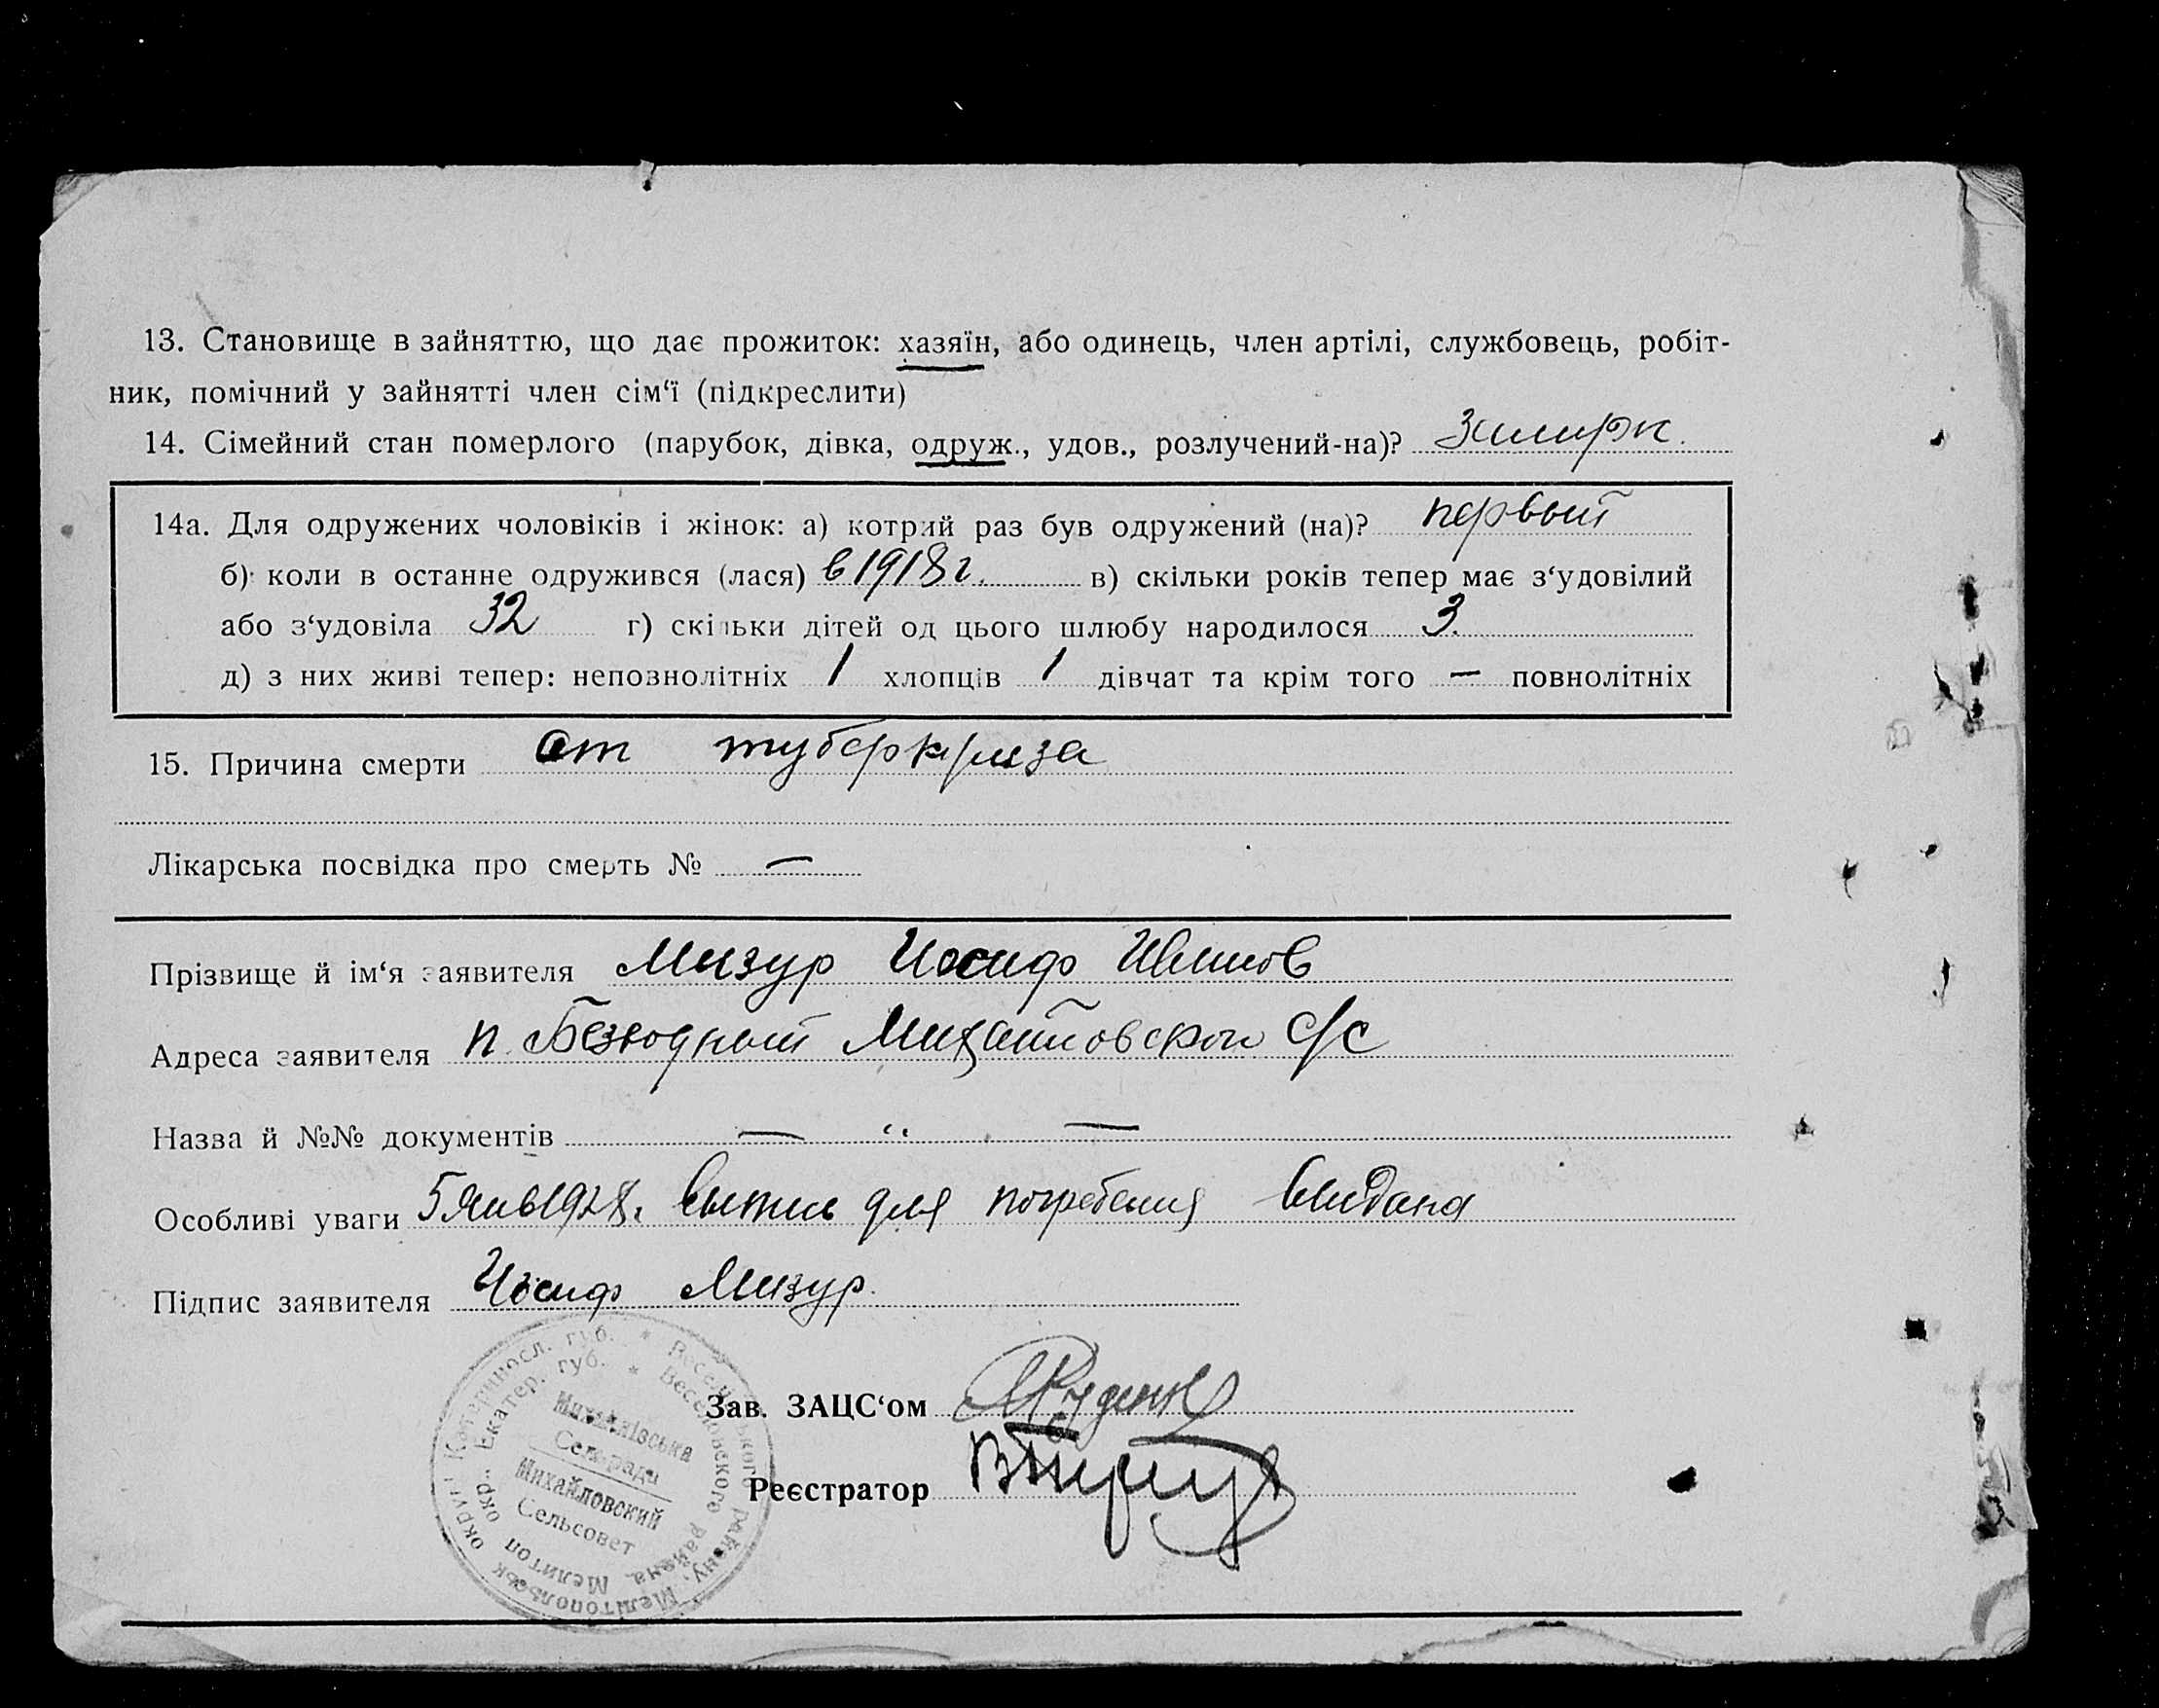 13. Становище в зайняттю, що дає прожиток: хазяїн, або одинець, член артілі, службовець, робіт-
ник, помічний у зайнятті член сім‘ї (підкреслити)
14. Сімейний стан померлого (парубок, дівка, одруж., удов., розлучений-на)?
14а. Для одружених чоловіків і жінок: а) котрий раз був одружений (на)? первый
б) коли в останне одружився (лася) в 1918 г. в) скільки років тепер має з‘удовілий
або з‘удовіла 32 г) скільки дітей од цього шлюбу народилося 3.
д) з них живі тепер: неповнолітніх 1 хлопців 1 дівчат та крім того — повнолітніх
15. Причина смерти от туберкулеза
Лікарська посвідка про смерть № —
Прізвище й ім‘я заявителя Мизур Иосиф
Адреса заявителя п. Безводный Михайловской с/с
Назва й №№ документів — “ —
Особливі уваги 5 Янв 1928. выпись для погребения выдана
Підпис заявителя Иосиф Мизур.
Зав. ЗАЦС‘ом
Реєстратор
Михайлівська
Сельрада
Михайловский
Сельсовет